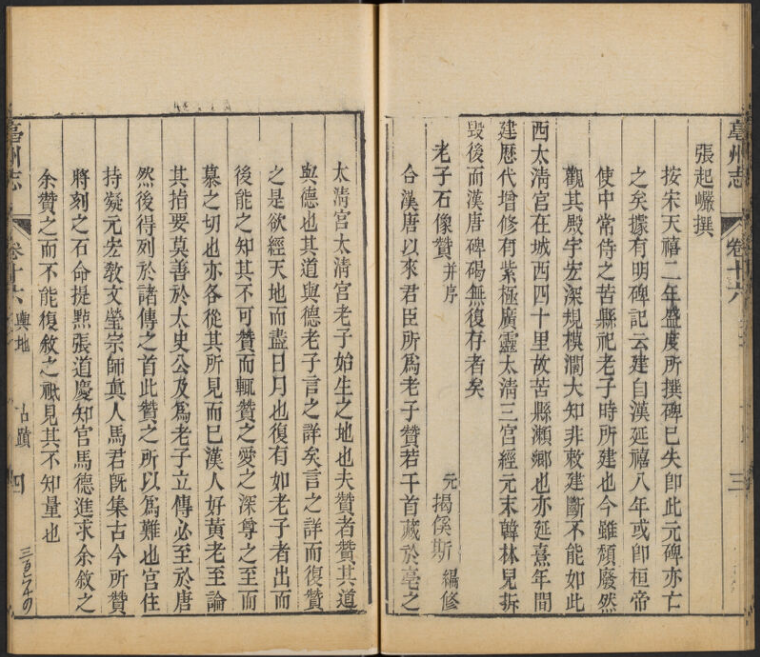 亳州志
卷十六
三
張起巖撰
按宋天禧二年盛度所撰碑已失卽此元碑亦亡
之矣據有明碑記云建自漢延禧八年或卽桓帝
使中常侍之苦縣祀老子時所建也今雖頹廢然
觀其殿宇宏深規模濶大知非敕建斷不能如此
西太淸宫在城西四十里故苦縣瀬鄉也亦延熹年間
建歷代增修有紫極廣靈太淸三宫經元末韓林兒拆
毁後而漢唐碑碣無復存者矣
老子石像贊并序 元揭傒斯編修
合漢唐以來君臣所爲老子贊若干首藏於亳之
太淸宫太淸宫老子始生之地也夫贊者贊其道
與德也其道與德老子言之詳矣言之詳而復贊
之是欲經天地而盡日月也復有如老子者出而
後能之知其不可贊而輒贊之愛之深尊之至而
慕之切也亦各從其所見而已漢人好黄老至論
其指要莫善於太史公及爲老子立傳必至於唐
然後得列於諸傳之首此贊之所以爲難也宫住
持凝元宏敎文瑩宗師眞人馬君旣集古今所贊
將刻之石命提㸃張道慶知官馬德進求余敘之
余贊之而不能復敘之祇見其不知量也
亳州志
卷十六
輿地
古蹟
四